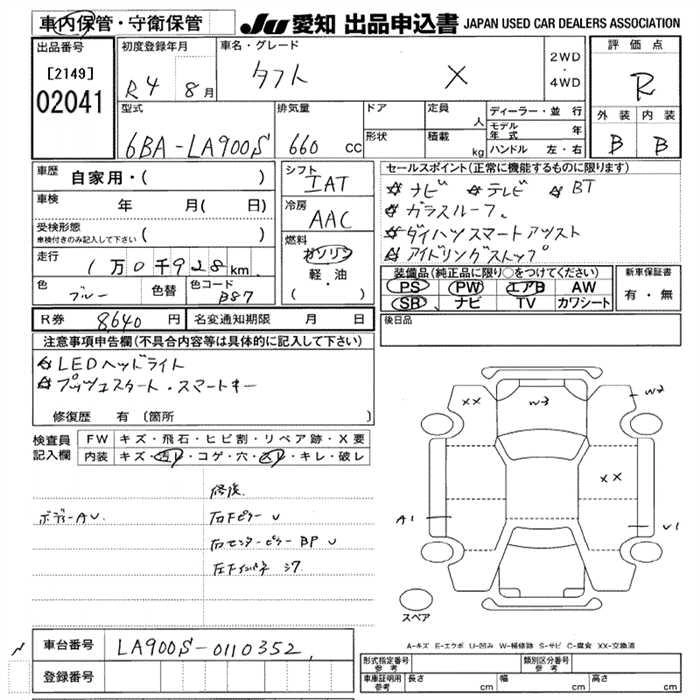 車内保管・守衛保管
JU 愛知 出品申込書 JAPAN USED CAR DEALERS ASSOCIATION
出品番号
[2149]
02041
初度登録年月
R4 8月
車名・グレード
タフト X
2WD
・
4WD
評価点
R
外装 内装
B B
型式
6BA-LA900S
排気量
660 cc
ドア
形状
定員 人
積載 kg
ディーラー・並行
モデル年式 年
ハンドル 左・右
車歴 自家用・( )
車検 年 月( 日)
受検形態
車検付きのみ記入して下さい ( )
走行 1万0千928km
色 ブルー 色替 色コード B87
シフト
IAT
冷房
AAC
燃料
ガソリン
軽・油
( )
セールスポイント(正常に機能するものに限ります)
☆ナビ ☆テレビ ☆BT
☆ガラスルーフ、
☆ダイハツスマートアシスト
☆アイドリングストップ
装備品(純正品に限り○をつけてください)
PS PW エアB AW
SR ナビ TV カワシート
新車保証書
有・無
R券 8640円 名変通知期限 月 日
後日品
注意事項申告欄(不具合内容等は具体的に記入して下さい)
☆LEDヘッドライト
☆プッシュスタート・スマートキー
修復歴 有 〔箇所 〕
検査員記入欄
FW キズ・飛石・ヒビ割・リペア跡・X要
内装 キズ・汚レ・コゲ・穴・スレ・キレ・破レ
修復
ボデーAU 右FピラーU
右センターピラーBPU
XX W3 W2
XX
A1 U1
スペア
A-キズ E-エクボ U-凹み W-補修跡 S-サビ C-腐食 XX-交換済
車台番号 LA900S-0110352
登録番号
形式指定番号 参考
類別区分番号 参考
車庫証明用 参考 長さ cm 幅 cm 高さ cm